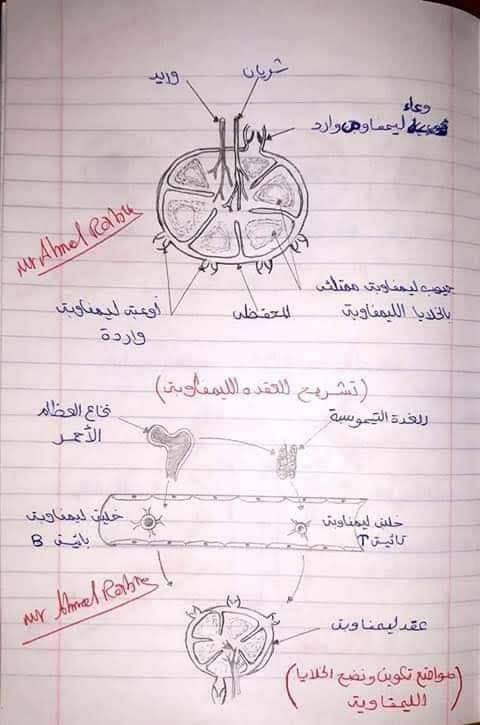 شريان
وريد
وعاء
ليمفاوى وارد
mr Ahmed Rabie
جيوب ليمفاوية ممتلئة
بالخلايا الليمفاوية
المحفظة
أوعية ليمفاوية
واردة
(تشريح العقده الليمفاوية)
نخاع العظام
الأحمر
الغدة التيموسية
خلية ليمفاوية
بائية B
خلية ليمفاوية
تائية T
mr Ahmed Rabie
عقد ليمفاوية
(مواقع تكوين ونضج الخلايا
الليمفاوية)